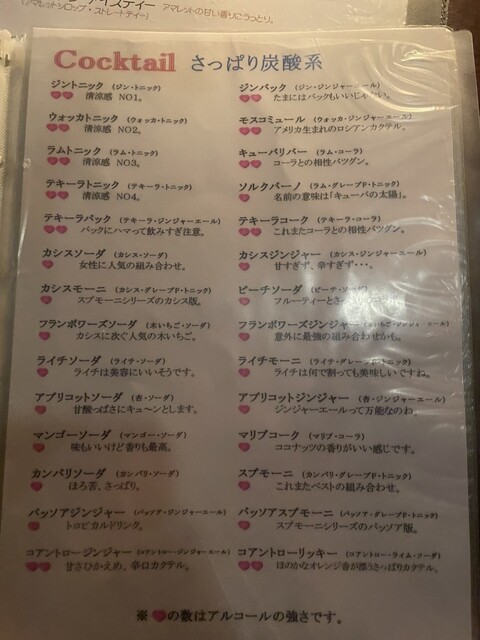 アイスティー
(アマレットシロップ・ストレートティー) アマレットの甘い香りにうっとり。
Cocktail さっぱり炭酸系
ジントニック (ジン・トニック)
清涼感 NO1。
ウォッカトニック (ウォッカ・トニック)
清涼感 NO2。
ラムトニック (ラム・トニック)
清涼感 NO3。
テキーラトニック (テキーラ・トニック)
清涼感 NO4。
テキーラバック (テキーラ・ジンジャーエール)
バックにハマって飲みすぎ注意。
カシスソーダ (カシス・ソーダ)
女性に人気の組み合わせ。
カシスモーニ (カシス・グレープド・トニック)
スプモーニシリーズのカシス版。
フランボワーズソーダ (木いちご・ソーダ)
カシスに次ぐ人気の木いちご。
ライチソーダ (ライチ・ソーダ)
ライチは美容にいいそうです。
アプリコットソーダ (杏・ソーダ)
甘酸っぱさにキュ〜ンとします。
マンゴーソーダ (マンゴー・ソーダ)
味もいいけど香りも最高。
カンパリソーダ (カンパリ・ソーダ)
ほろ苦、さっぱり。
パッソアジンジャー (パッソア・ジンジャーエール)
トロピカルドリンク。
コアントロージンジャー (コアントロー・ジンジャーエール)
甘さひかえめ、辛口カクテル。
ジンバック (ジン・ジンジャーエール)
たまにはバックもいいじゃない。
モスコミュール (ウォッカ・ジンジャーエール)
アメリカ生まれのロシアンカクテル。
キューバリバー (ラム・コーラ)
コーラとの相性バツグン。
ソルクバーノ (ラム・グレープド・トニック)
名前の意味は「キューバの太陽」。
テキーラコーク (テキーラ・コーラ)
これまたコーラとの相性バツグン。
カシスジンジャー (カシス・ジンジャーエール)
甘すぎず、辛すぎず・・・。
ピーチソーダ (ピーチ・ソーダ)
フルーティーとさっ
フランボワーズジンジャー (木いちご・ジンジャーエール)
意外に最強の組み合わせかも。
ライチモーニ (ライチ・グレープド・トニック)
ライチは何で割っても美味しいですね。
アプリコットジンジャー (杏・ジンジャーエール)
ジンジャーエールって万能なのね
マリブコーク (マリブ・コーラ)
ココナッツの香りがいい感じです。
スプモーニ (カンパリ・グレープド・トニック)
これまたベストの組み合わせ。
パッソアスプモーニ (パッソア・グレープド・トニック)
スプモーニシリーズのパッソア版。
コアントローリッキー (コアントロー・ライム・ソーダ)
ほのかなオレンジ香が漂うさっぱりカクテル。
※💗の数はアルコールの強さです。